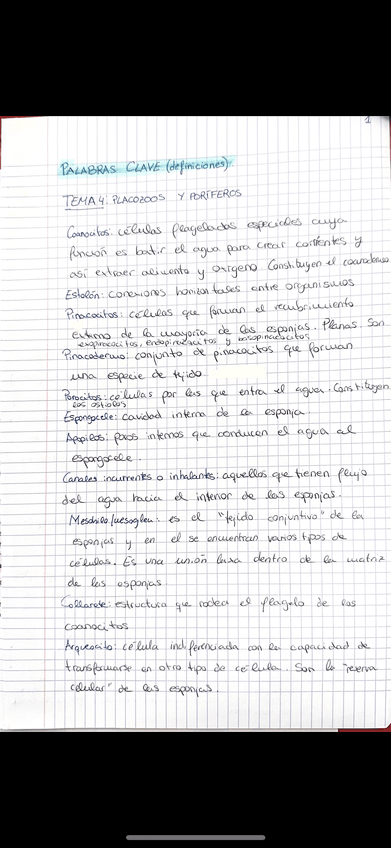 1
PALABRAS CLAVE (definiciones)
TEMA 4: PLACOZOOS Y PORÍFEROS
Coanocitos: células flageladas especiales cuya
función es batir el agua para crear corrientes y
así extraer alimento y oxígeno. Constituyen el coanodermo
Estolón: conexiones horizontales entre organismos
Pinacocitos: células que forman el recubrimiento
externo de la mayoría de las esponjas. Planas. Son
exopinacocitos, endopinacocitos y basopinacocitos
Pinacodermo: conjunto de pinacocitos que forman
una especie de tejido
Porocitos: células por las que entra el agua. Constituyen
los ostiolos
Espongocele: cavidad interna de la esponja.
Apopilos: poros internos que conducen el agua al
espongocele.
Canales incurrentes o inhalantes: aquellos que tienen flujo
del agua hacia el interior de las esponjas.
Mesohilo/mesoglea: es el "tejido conjuntivo" de la
esponjas y en el se encuentran varios tipos de
células. Es una unión laxa dentro de la matriz
de las esponjas
Collarete: estructura que rodea el flagelo de los
coanocitos
Arqueocito: célula indiferenciada con la capacidad de
transformarse en otro tipo de célula. Son la "reserva
celular" de las esponjas.